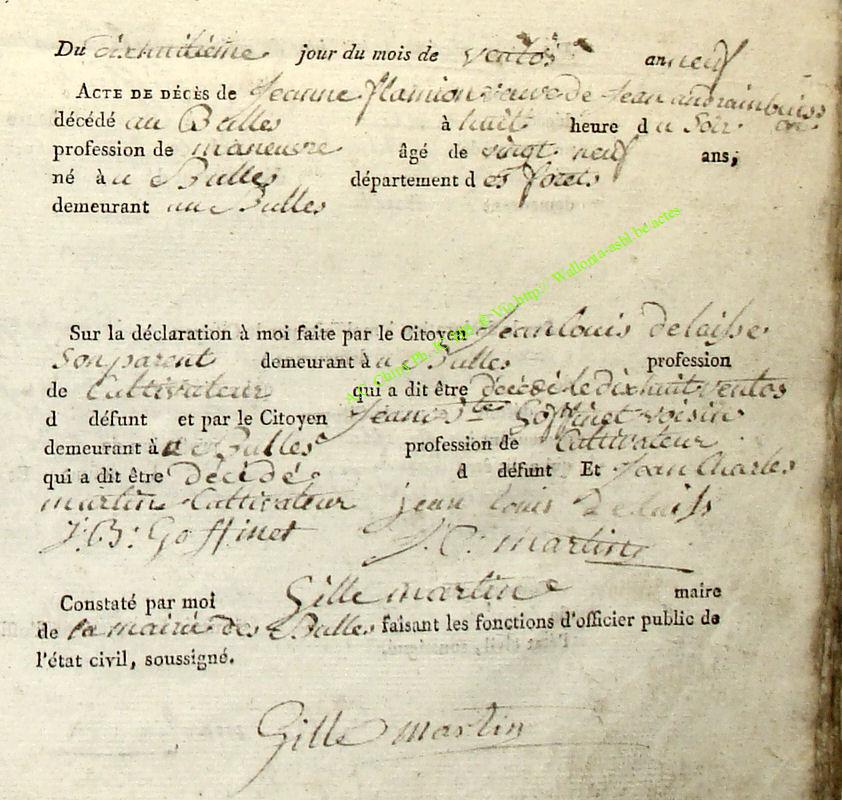 Du dixhuitieme jour du mois de ventos an neuf
ACTE DE DÉCÈS de Jeanne flamion veuve de Jean
décédé au Bulles à huit heure du Soir
profession de maneuvre âgé de vingt neuf ans;
né à u Bulles département des forets
demeurant au Bulles
Sur la déclaration à moi faite par le Citoyen Jean louis delaisse
Son parent demeurant à u Bulles profession
de Cultivateur qui a dit être décédé le dixhuit ventos
d défunt et par le Citoyen Jean Bte Goffinet voisin
demeurant à Bulles profession de Cultivateur
qui a dit être décidé d défunt Et Jean Charles
martin Cultivateur jean louis Delaiss
J: B: Goffinet J: C: martin
Constaté par moi Gille martin maire
de la mairie des Bulles faisant les fonctions d'officier public de
l'état civil, soussigné.
Gille martin
http:// Wallonia-asbl be actes